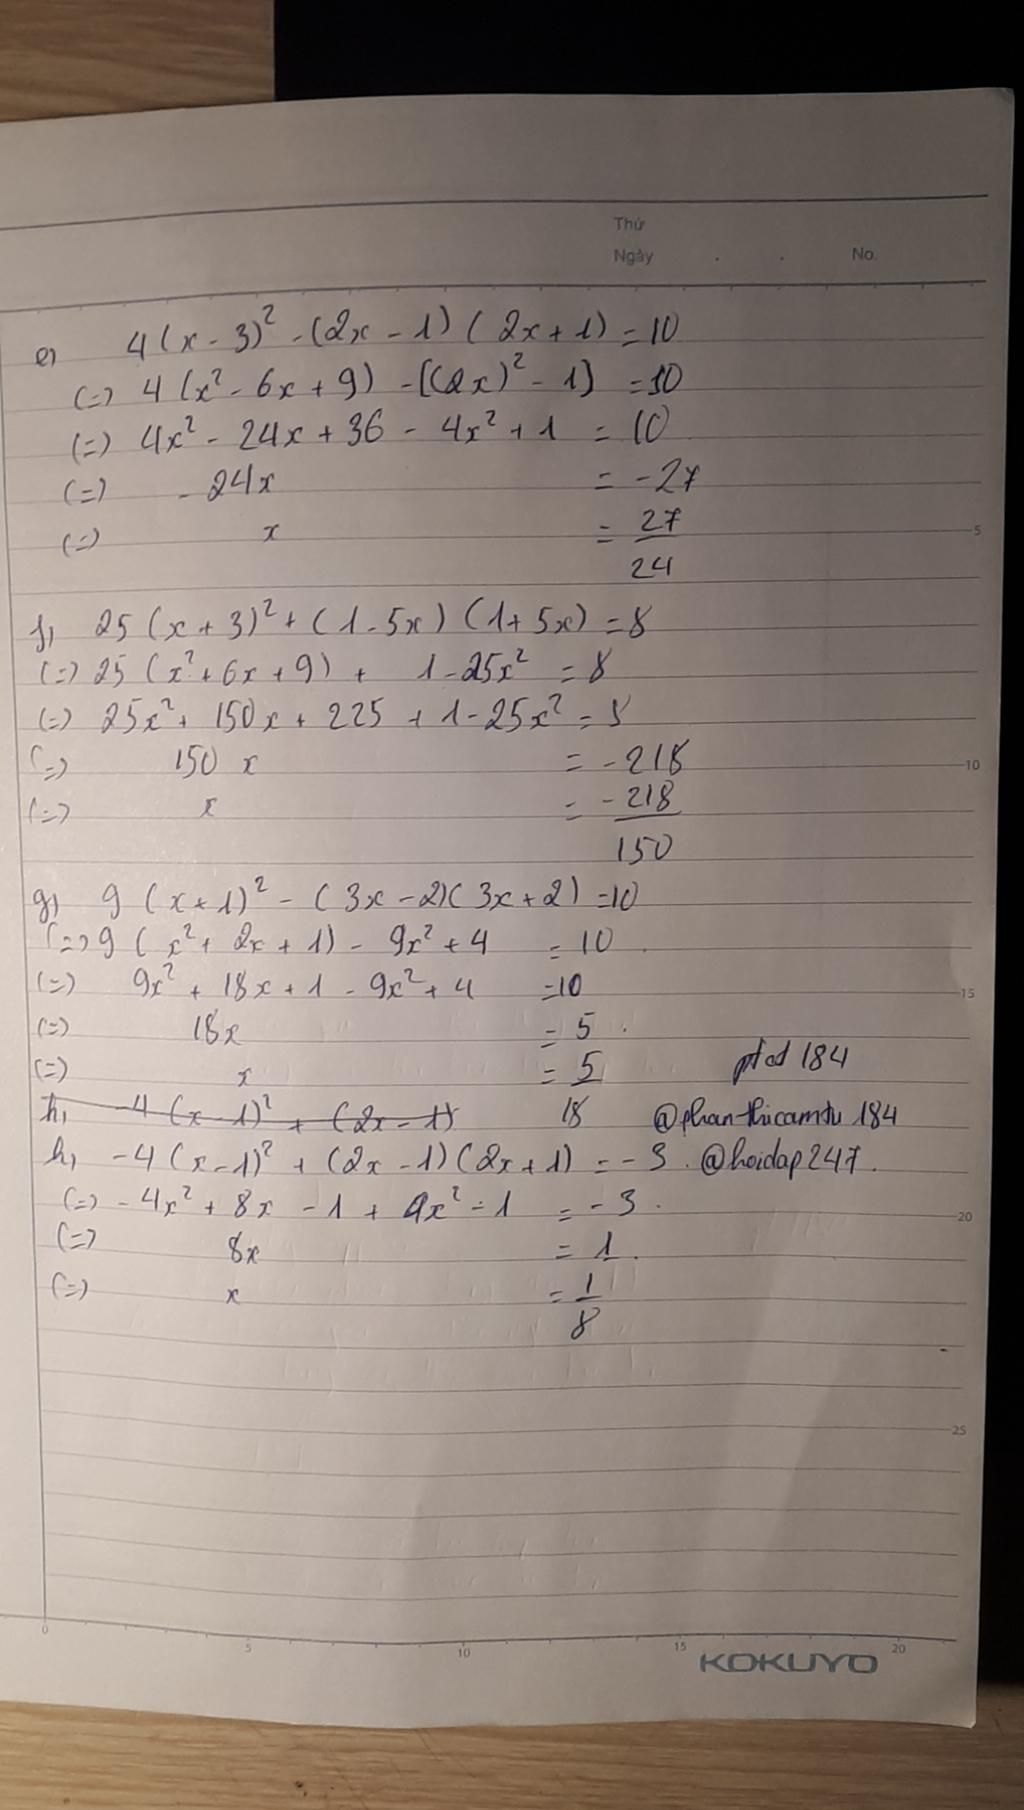 Thứ
Ngày . . No.
e) 4(x - 3)² - (2x - 1)(2x + 1) = 10
(=) 4(x² - 6x + 9) - [(2x)² - 1] = 10
(=) 4x² - 24x + 36 - 4x² + 1 = 10
(=) - 24x = -27
(=) x = 27/24
f) 25(x + 3)² + (1 - 5x)(1 + 5x) = 8
(=) 25(x² + 6x + 9) + 1 - 25x² = 8
(=) 25x² + 150x + 225 + 1 - 25x² = 8
(=) 150x = -218
(=) x = -218/150
g) 9(x + 1)² - (3x - 2)(3x + 2) = 10
(=) 9(x² + 2x + 1) - 9x² + 4 = 10
(=) 9x² + 18x + 1 - 9x² + 4 = 10
(=) 18x = 5
(=) x = 5/18
184
h, -4(x - 1)² + (2x - 1)
@phanthicamtu184
h, -4(x - 1)² + (2x - 1)(2x + 1) = -3. @hoidap247.
(=) -4x² + 8x - 1 + 4x² - 1 = -3.
(=) 8x = 1.
(=) x = 1/8
5
10
15
20
25
0 5 10 15 20
KOKUYO